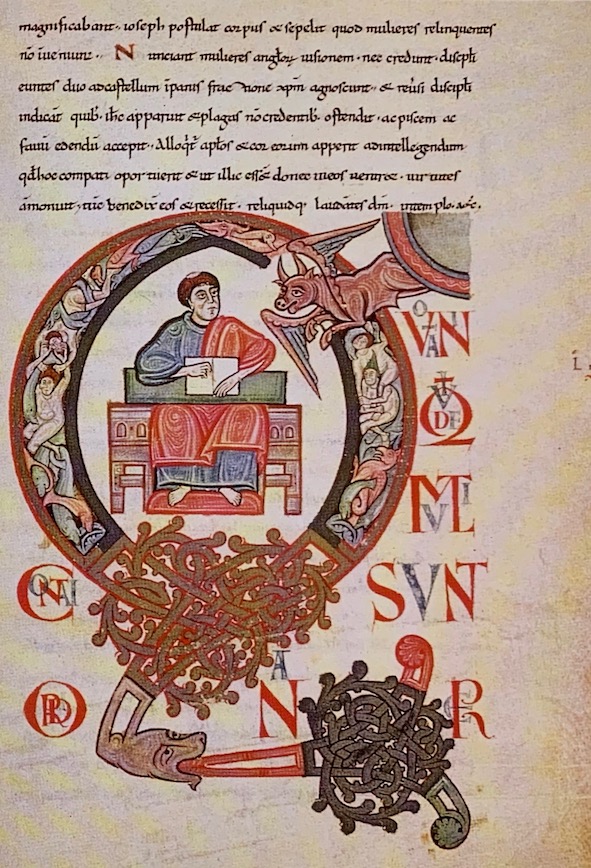 magnificabant. ioseph postulat corpus & sepelit quod mulieres relinquentes
nō īueniunt. Nunciant mulieres uisionem. nec credunt. discipłi
euntes duo ad castellum īpanis fractione xpm agnoscunt. & discipłi
indicāt quib. ihc apparuit & plagas nō credentib. ostendit. ac piscem ac
fauū edendū accepit. & cor eorum apperit adintellegendum
hoc compati & ut illic donec uirtutes
tūc eos & recessit. reliquidq. laudātes dm. intemplo.
QVONIA
QVIDE
MVLTI
CONATI SVNT
ORD NAR